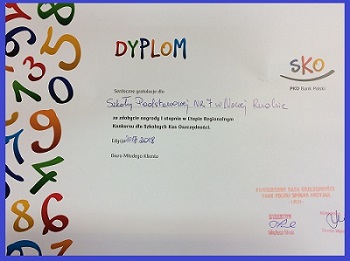 DYPLOM
SKO
PKO Bank Polski
Serdeczne gratulacje dla
Szkoły Podstawowej Nr 7 w Nowej Rudzie
za zdobycie nagrody I stopnia w Etapie Regionalnym
Konkursu dla Szkolnych Kas Oszczędności.
Edycja 2017/2018
Biuro Młodego Klienta